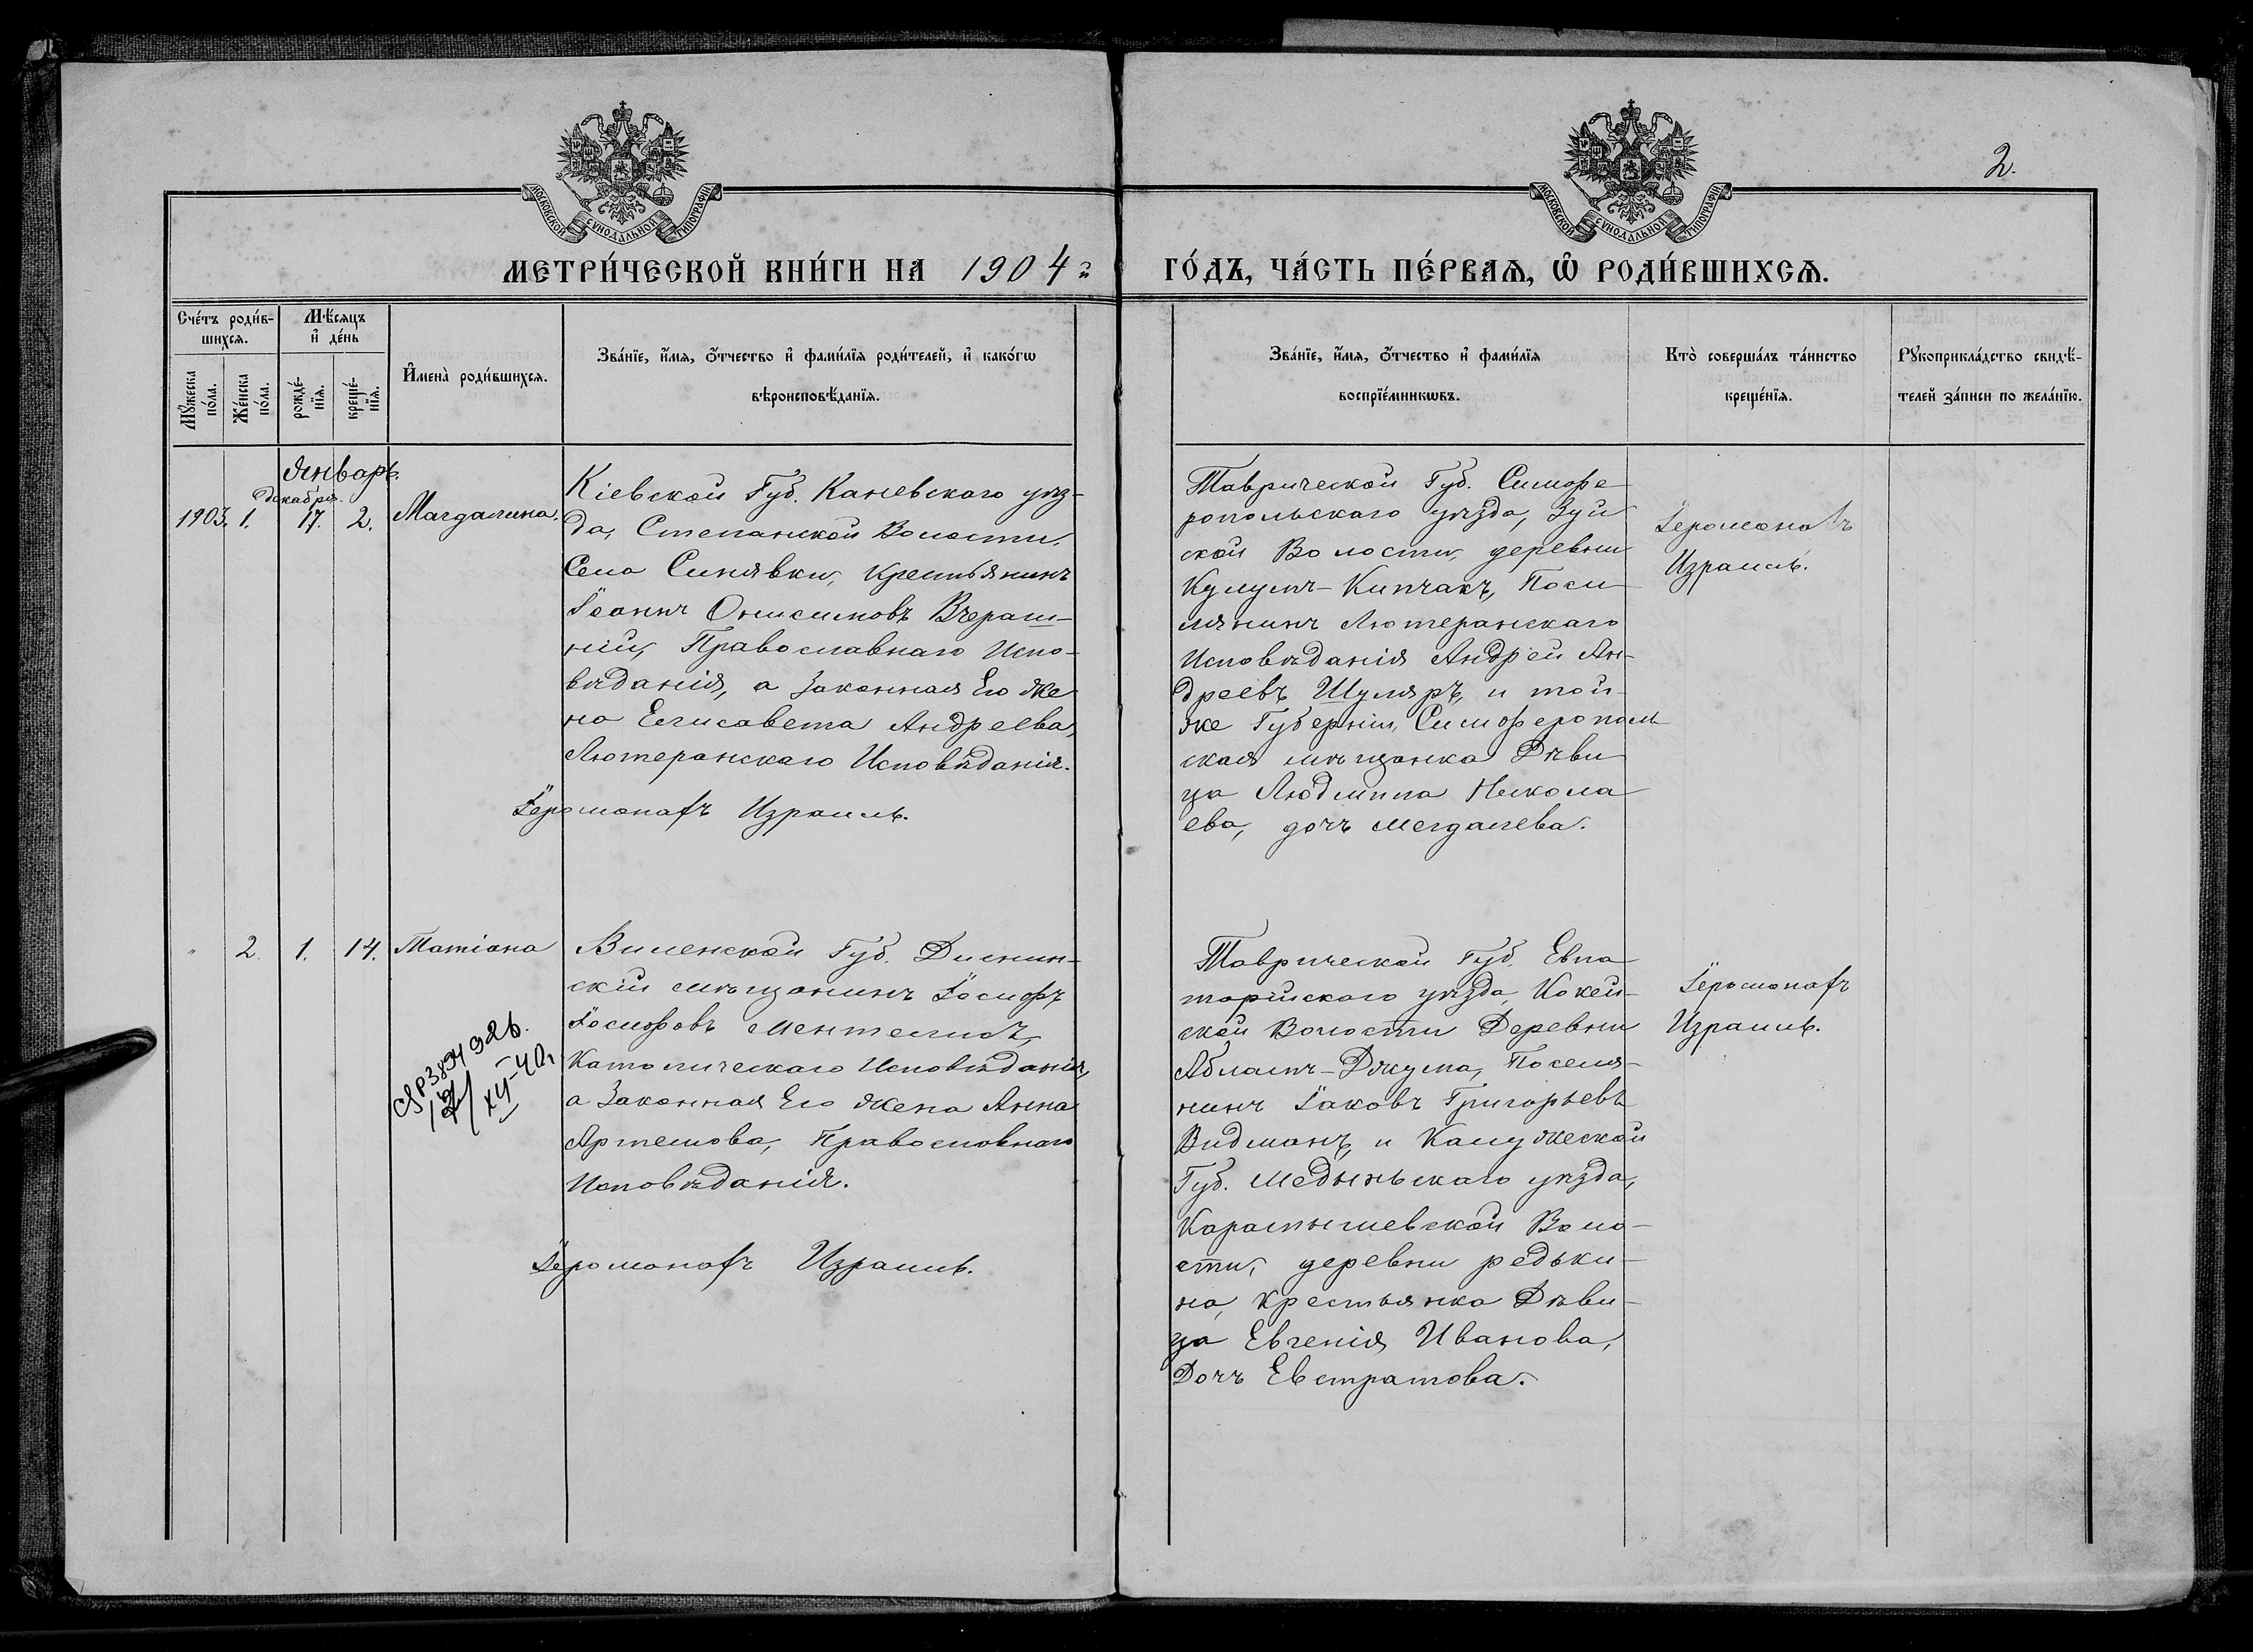 2.
МОСКОВСКОЙ СѴНОДАЛЬНОЙ ТИПОГРАФІИ
МОСКОВСКОЙ СѴНОДАЛЬНОЙ ТИПОГРАФІИ
МЕТРИ́ЧЕСКОЙ КНИ́ГИ НА 1904 г. ГО́ДЪ, ЧА́СТЬ ПЕ́РВАѦ, Ѡ҆ РОДИ́ВШИХСѦ.
Сче́тъ роди́в-
шихсѧ.
Мꙋ́жеска по́ла.
Же́нска по́ла.
Мѣ́сѧцъ
и҆ де́нь
рожде́-
нїѧ.
креще́-
нїѧ.
И҆мена̀ роди́вшихсѧ.
Зва́нїе, и҆́мѧ, ѻ҆́тчество и҆ фами́лїѧ роди́телей, и҆ како́гѡ
вѣроисповѣ́данїѧ.
Зва́нїе, и҆́мѧ, ѻ҆́тчество и҆ фами́лїѧ
воспрїе́мникѡвъ.
Кто̀ соверша́лъ та́инство
креще́нїѧ.
Рꙋкоприкла́дство свидѣ́-
телей за́писи по жела́нїю.
Январь.
декабря.
1903. 1. 17. 2. Магдалина.
Кіевской Губ. Каневскаго уѣз-
да, Степанской Волости,
Села Синявки, крестьянинъ
Іоаннъ Онисимовъ Вчераш-
ній, Православнаго Испо-
вѣданія, а Законная Его Же
на Елисавета Андреева,
Лютеранскаго Исповѣданія.
Іеромонахъ Израиль.
Таврической Губ. Симфе
ропольскаго уѣзда, Зуй
ской Волости, деревни
Кулумъ-Кипчакъ, Посе
лянинъ Лютеранскаго
Исповѣданія Андрей Ан-
дреевъ Шуляръ, и той-
же Губерніи, Симферополь
ская мѣщанка Дѣви
ца Людмила Никола
ева, дочь Магдалева.
Іеромонахъ
Израиль.
" 2. 1. 14. Татіана
Виленской Губ. Диснин-
скій мѣщанинъ Іосифъ
Іосифовъ Ментелисъ,
Католическаго Исповѣданія,
а Законная Его Жена Анна
Артемова, Православнаго
Исповѣданія.
Іеромонахъ Израиль.
389432б.
XII-40г
Таврической Губ. Евпа
торійскаго уѣзда, Кокей-
ской Волости Деревни
Абламъ-Джума, Поселя-
нинъ Іаковъ Григорьевъ
Видманъ, и Калужеской
Губ. Медыньскаго уѣзда,
Карамышевской Воло-
сти, деревни редьки-
на, крестьянка Дѣви-
ца Евгенія Иванова,
Дочь Евстратова.
Іеромонахъ
Израиль.